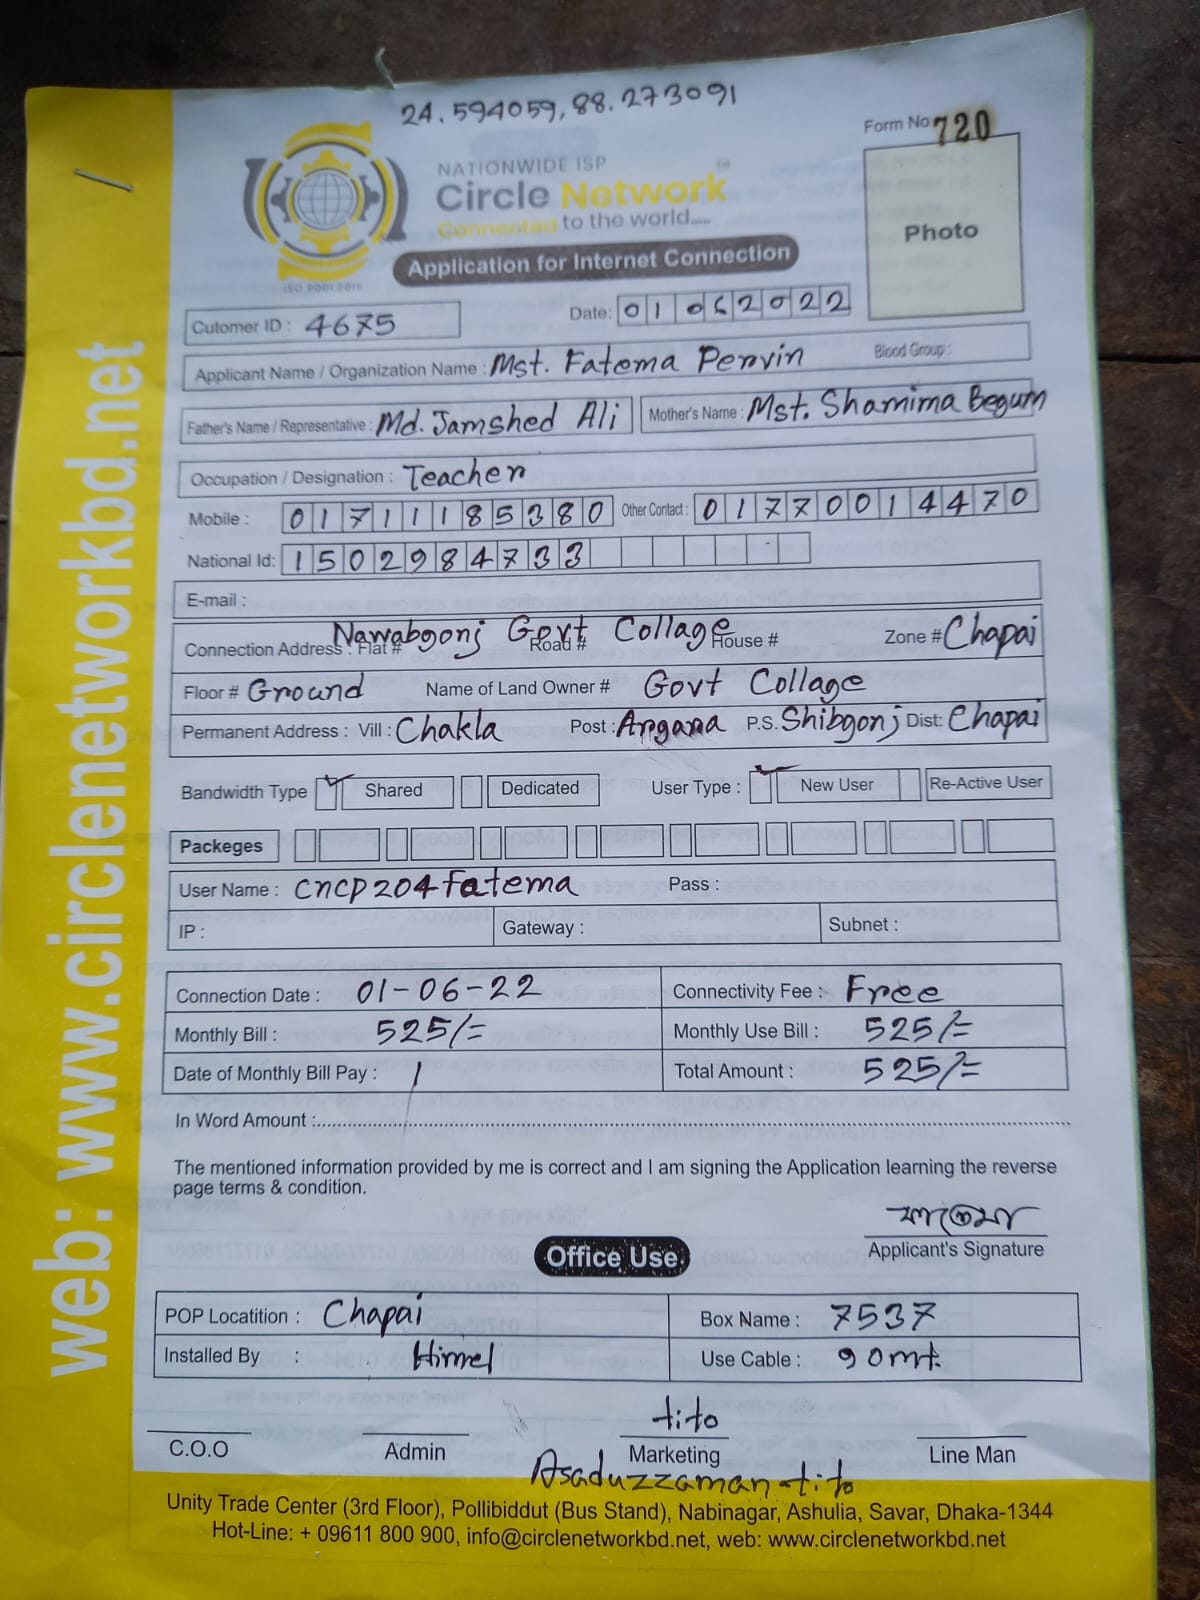 24.594059, 88.273091
Form No 720
NATIONWIDE ISP
Circle Network
Connected to the world.....
ISO 9001:2015
Photo
Application for Internet Connection
Cutomer ID : 4675
Date: 01062022
Applicant Name / Organization Name : Mst. Fatema Pervin Blood Group :
Father's Name / Representative : Md. Jamshed Ali Mother's Name : Mst. Shamima Begum
Occupation / Designation : Teacher
Mobile : 01711185380 Other Contact : 01770014470
National Id: 1502984733
E-mail :
Connection Address : Flat # Nawabgonj Govt Collage Road # House # Zone # Chapai
Floor # Ground Name of Land Owner # Govt Collage
Permanent Address : Vill : Chakla Post : Argana P.S. Shibgonj Dist: Chapai
Bandwidth Type Shared Dedicated User Type : New User Re-Active User
Packeges
User Name : cncp204fatema Pass :
IP : Gateway : Subnet :
Connection Date : 01-06-22 Connectivity Fee : Free
Monthly Bill : 525/= Monthly Use Bill : 525/=
Date of Monthly Bill Pay : 1 Total Amount : 525/=
In Word Amount :
The mentioned information provided by me is correct and I am signing the Application learning the reverse
page terms & condition.
ফাতেমা
Applicant's Signature
Office Use
POP Locatition : Chapai Box Name : 7537
Installed By : Himel Use Cable : 90mt.
tito
C.O.O Admin Marketing Line Man
Asaduzzaman tito
Unity Trade Center (3rd Floor), Pollibiddut (Bus Stand), Nabinagar, Ashulia, Savar, Dhaka-1344
Hot-Line: + 09611 800 900, info@circlenetworkbd.net, web: www.circlenetworkbd.net
web: www.circlenetworkbd.net